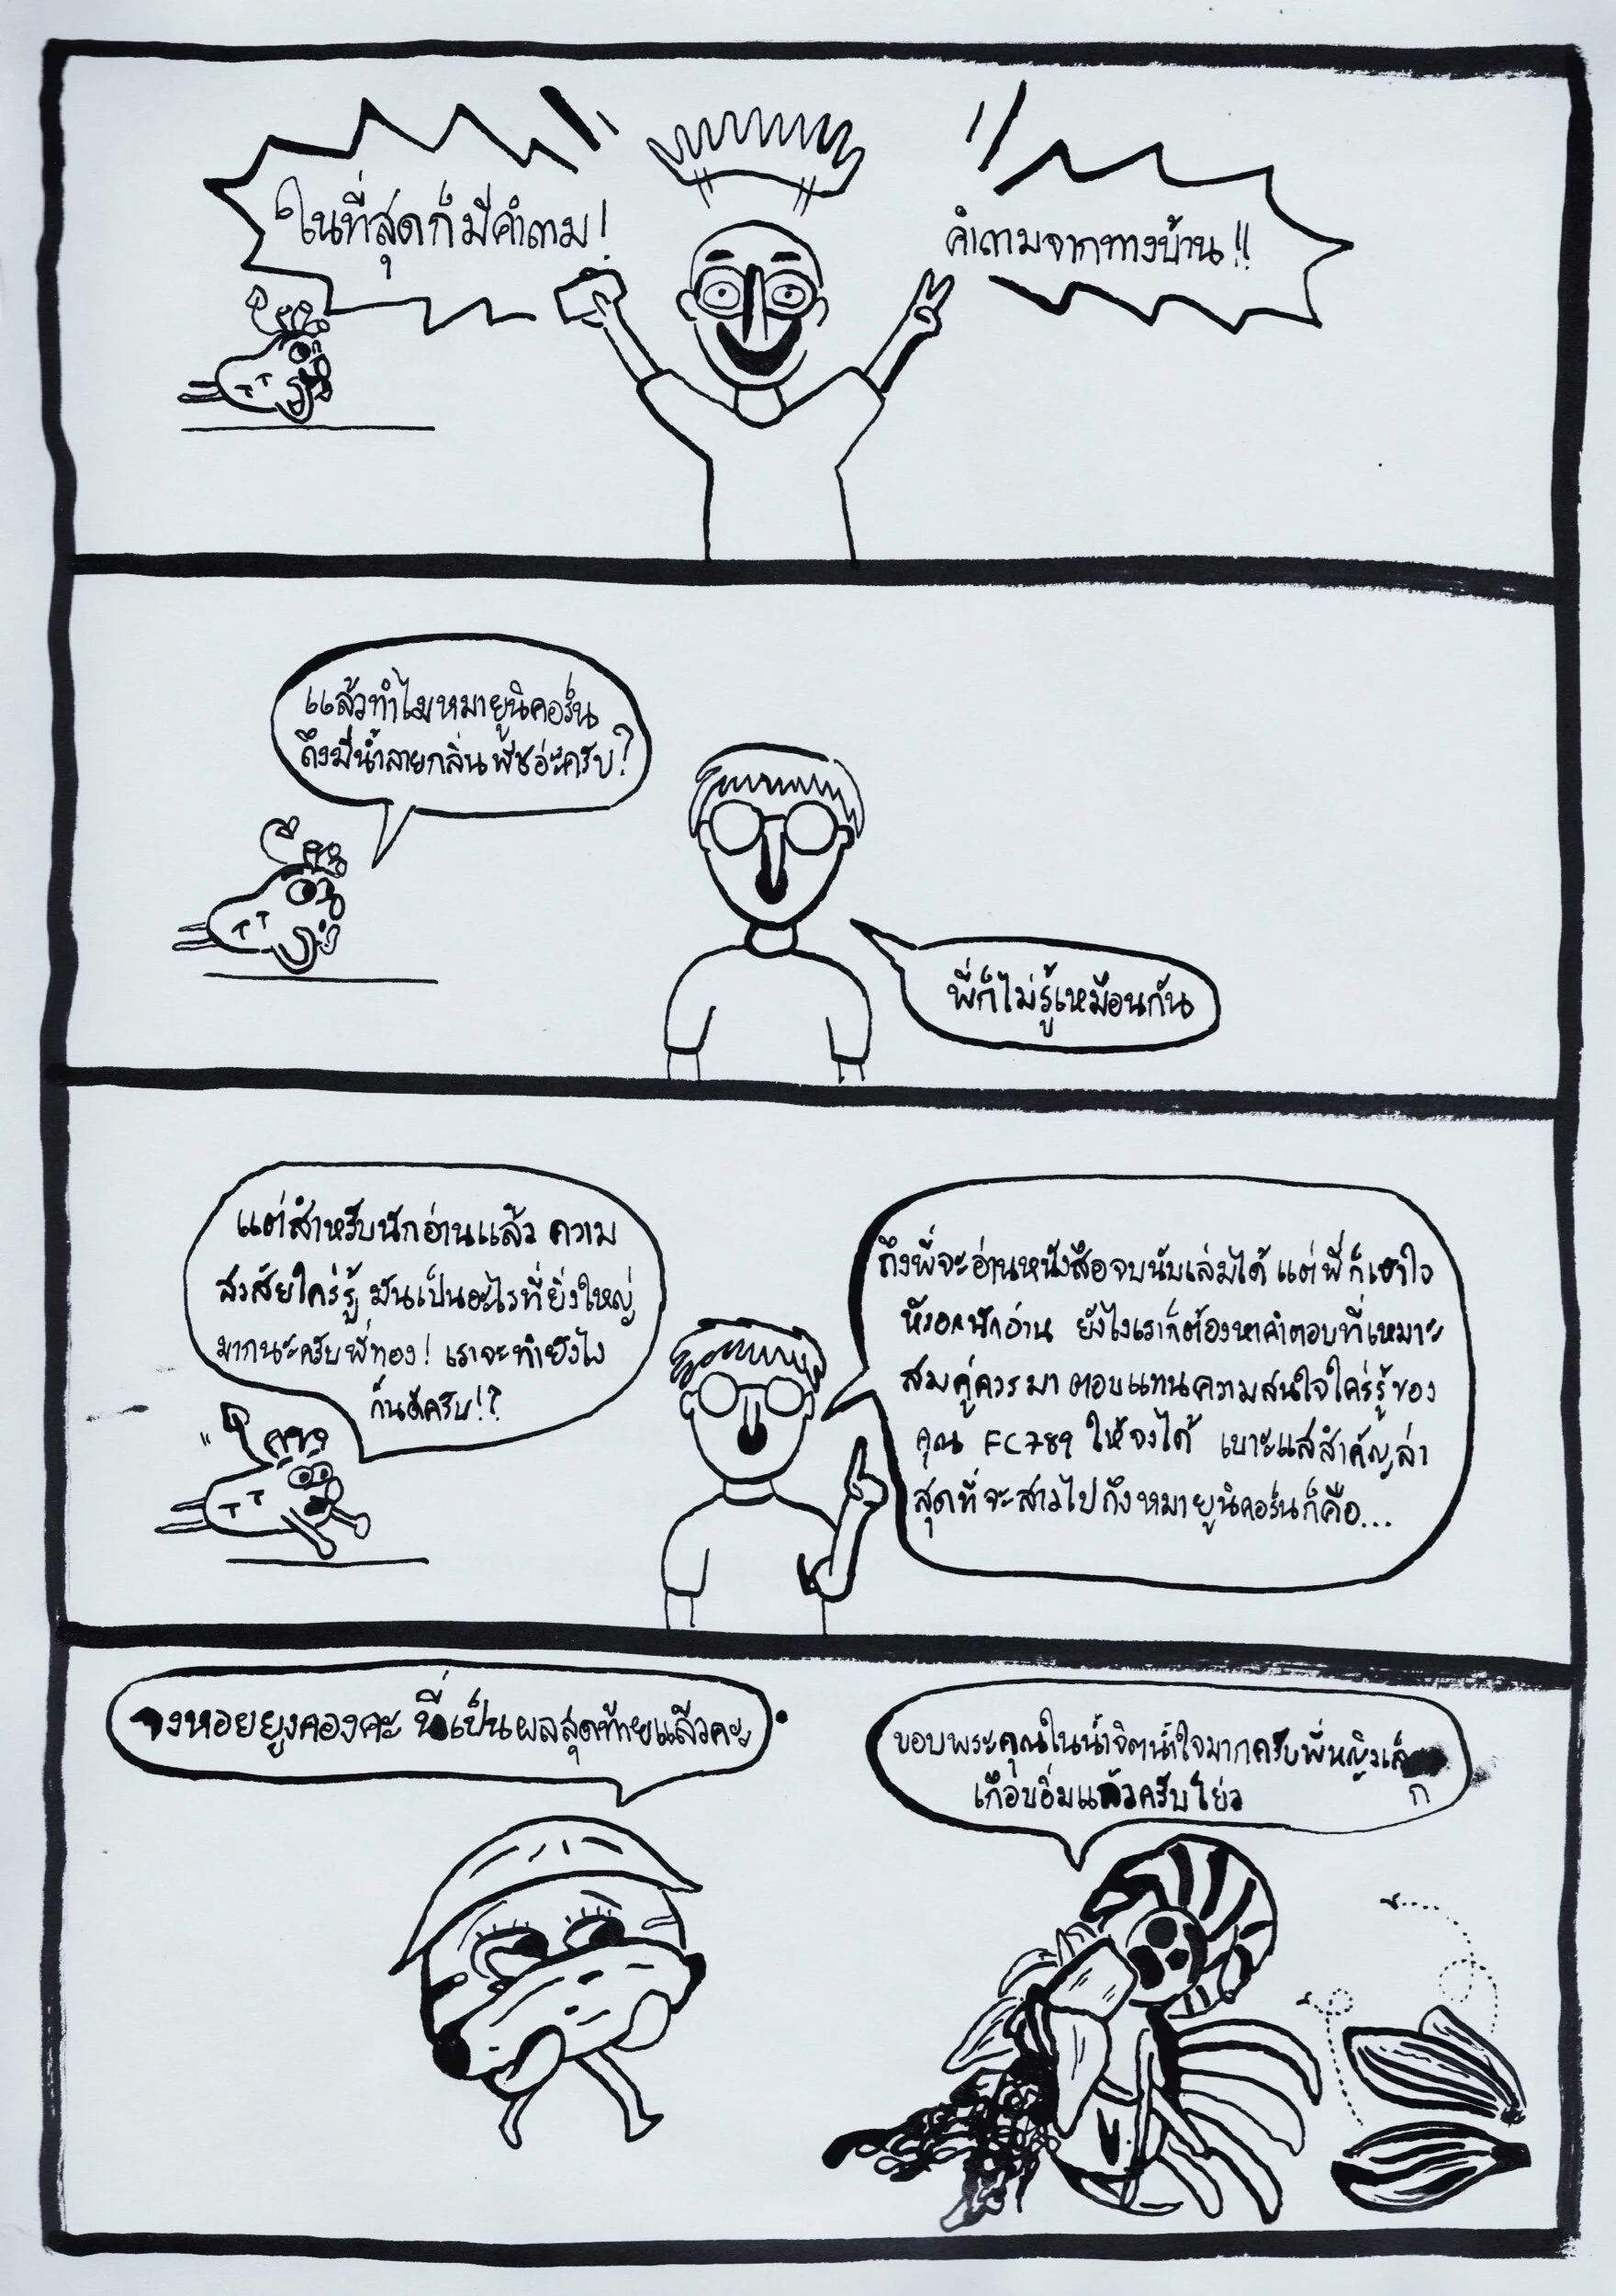 ในที่สุดก็มีคำถาม!
คำถามจากทางบ้าน!!
แล้วทำไมหมายูนิคอร์น
ถึงมีน้ำลายกลิ่นพีชอ่ะครับ?
พี่ก็ไม่รู้เหมือนกัน
แต่สำหรับนักอ่านแล้ว ความ
สงสัยใคร่รู้ มันเป็นอะไรที่ยิ่งใหญ่
มากนะครับพี่ทอง! เราจะทำยังไง
กันดีครับ!?
ถึงพี่จะอ่านหนังสือจบนับเล่มได้ แต่พี่ก็เข้าใจ
หัวอกนักอ่าน ยังไงเราก็ต้องหาคำตอบที่เหมาะ
สมคู่ควรมาตอบแทนความสนใจใคร่รู้ของ
คุณ FC789 ให้จงได้ เบาะแสสำคัญล่า
สุดที่จะสาวไปถึงหมายูนิคอร์นก็คือ...
งหอยยูงคองคะ นี่เป็นผลสุดท้ายแล้วคะ
ขอบพระคุณในน้ำจิตน้ำใจมากครับพี่หญิงเล็ก
เกือบอิ่มแล้วครับโย่ว